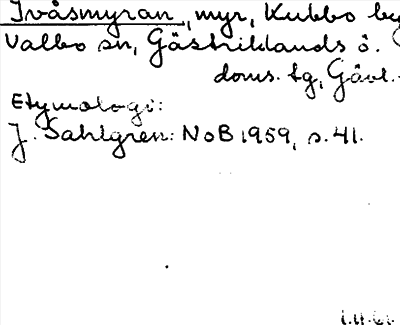 Ivåsmyran, myr, Kubbo by
Valbo sn, Gästriklands ö.
doms. tg, Gävl.
Etymologi:
J. Sahlgren: NoB 1959, s. 41.